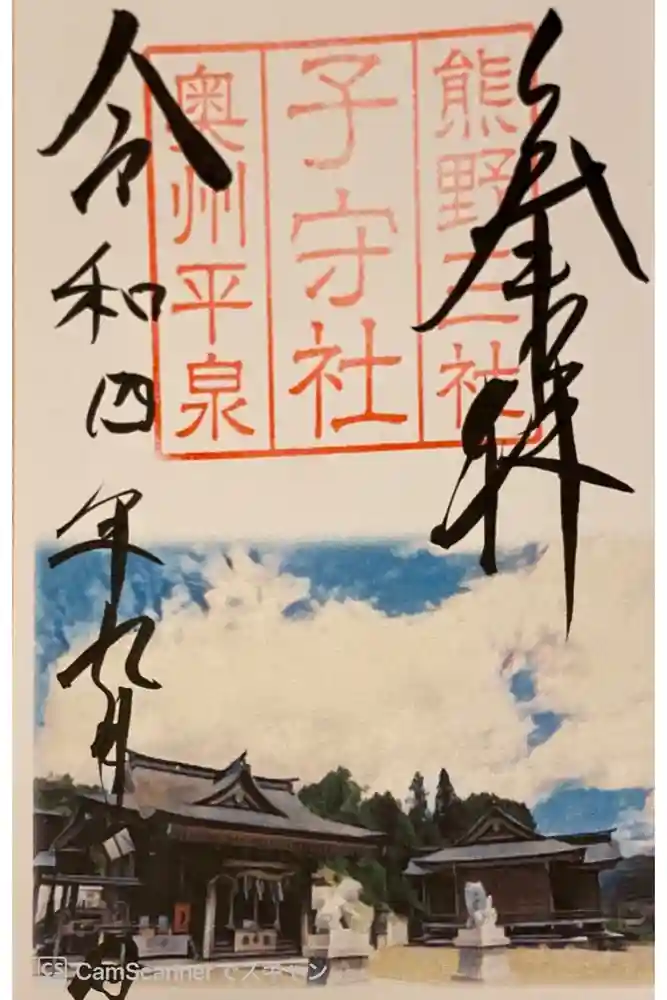 奉拝
熊野三社
子守社
奥州平泉
令和四年九月
日
CS CamScannerでスキャン